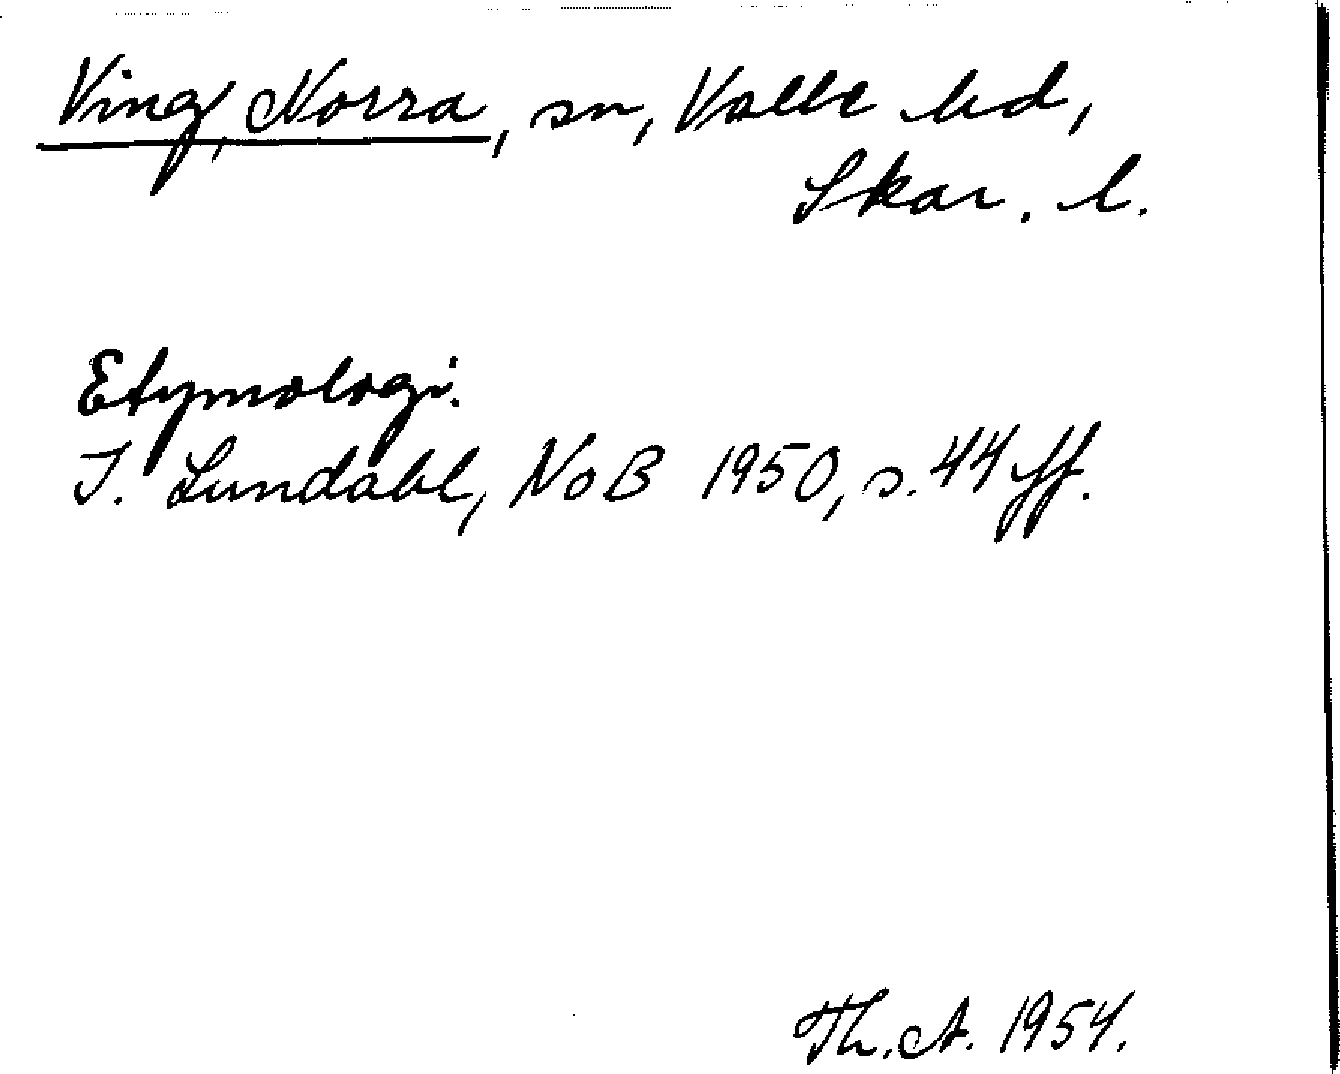 Ving, Norra, sn, Valle hd,
Skar. l.
Etymologi.
I. Lundahl, NoB 1950, s. 44 ff.
Th. A. 1954.